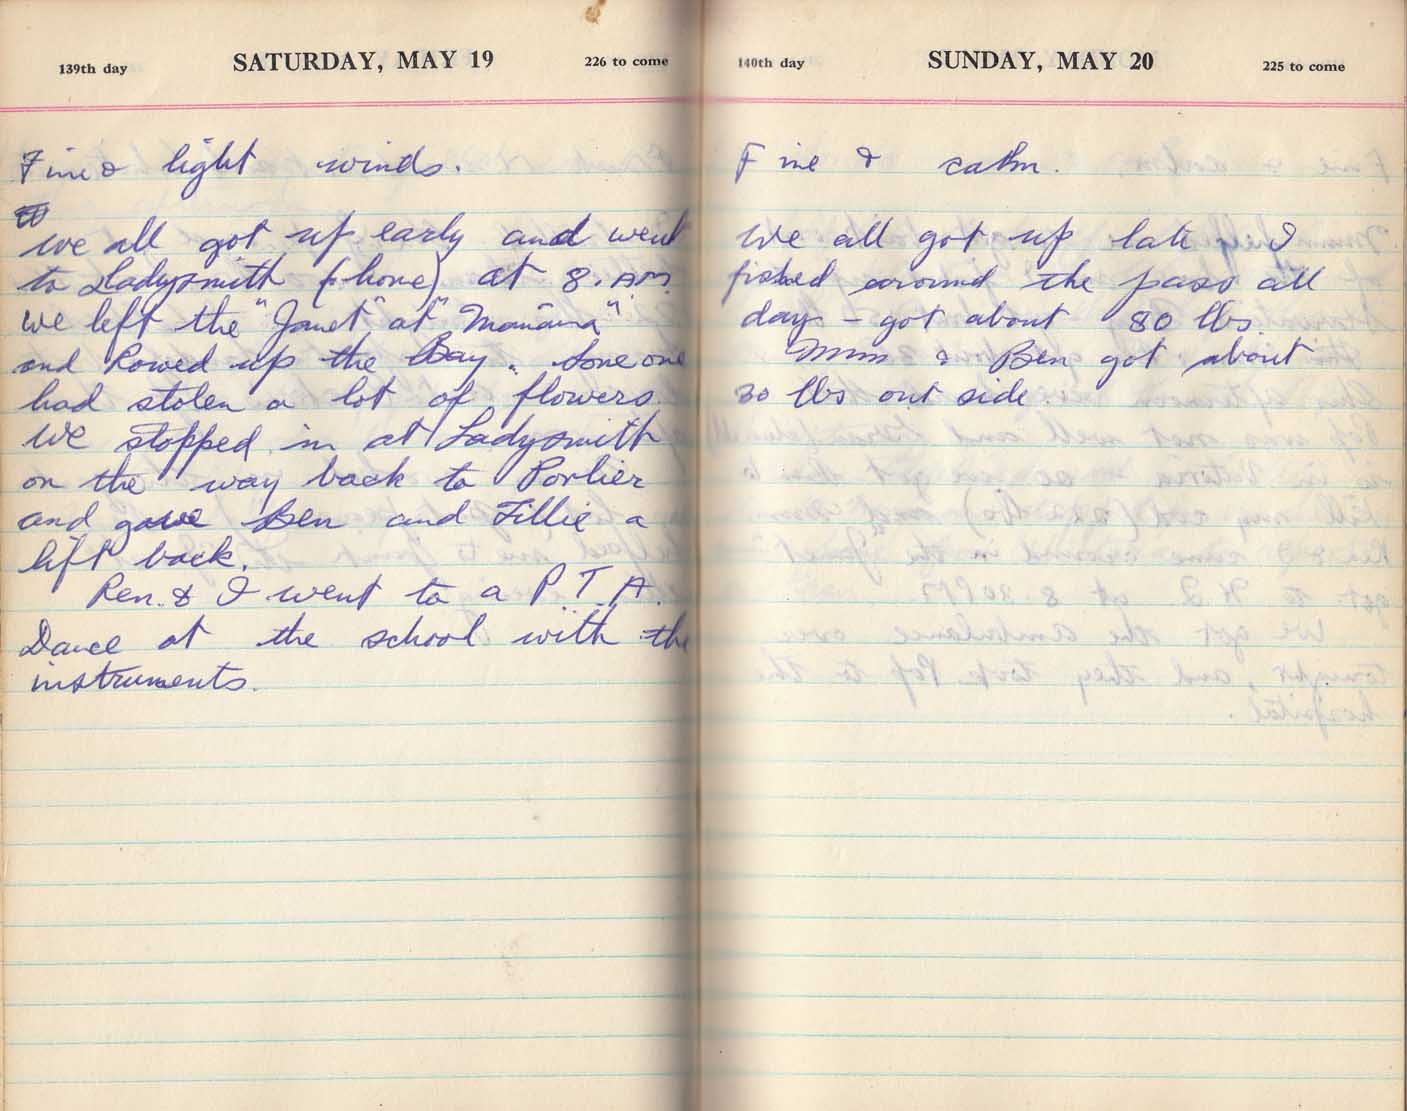 139th day SATURDAY, MAY 19 226 to come
Fine & light winds.
We all got up early and went
to Ladysmith (home) at 8. AM.
We left the "Janet" at "Mañana"
and Rowed up the Bay. Some one
had stolen a lot of flowers.
We stopped in at Ladysmith
on the way back to Porlier
and gave Ben and Tillie a
lift back.
Ren. & I went to a P.T.A.
Dance at the school with the
instruments.
140th day SUNDAY, MAY 20 225 to come
Fine & calm.
We all got up late I
fished around the pass all
day – got about 80 lbs.
Mum & Ben got about
30 lbs out side.